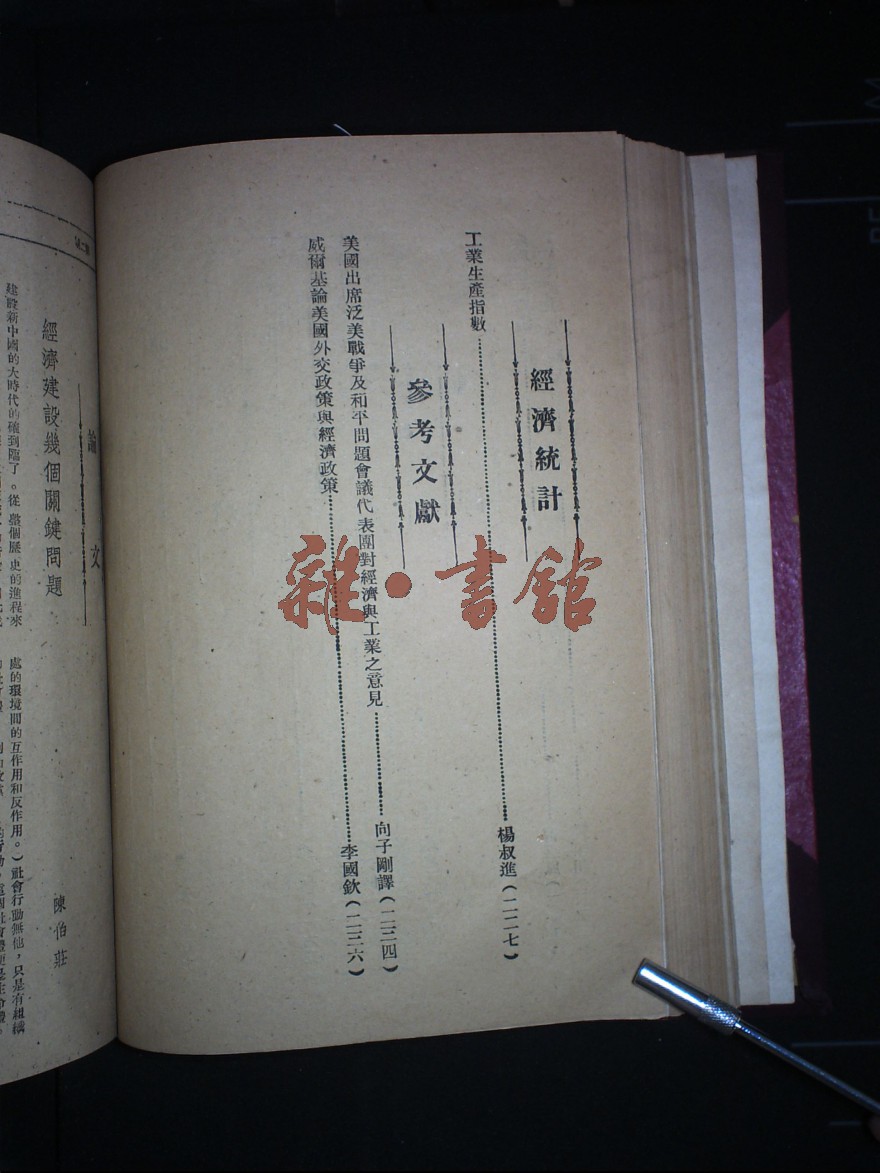 經濟統計
工業生產指數楊叔進(二二七)
參考文獻
美國出席泛美戰爭及和平問題會議代表團對經濟與工業之意見向子剛譯(二三四)
威爾基論美國外交政策與經濟政策李國欽(二三六)
雜·書館
論文
經濟建設幾個關鍵問題
陳伯莊
建設新中國的大時代的確到臨了。從整個歷史的進程來
處的環境間的互作用和反作用。)社會行動無他,只是有組織